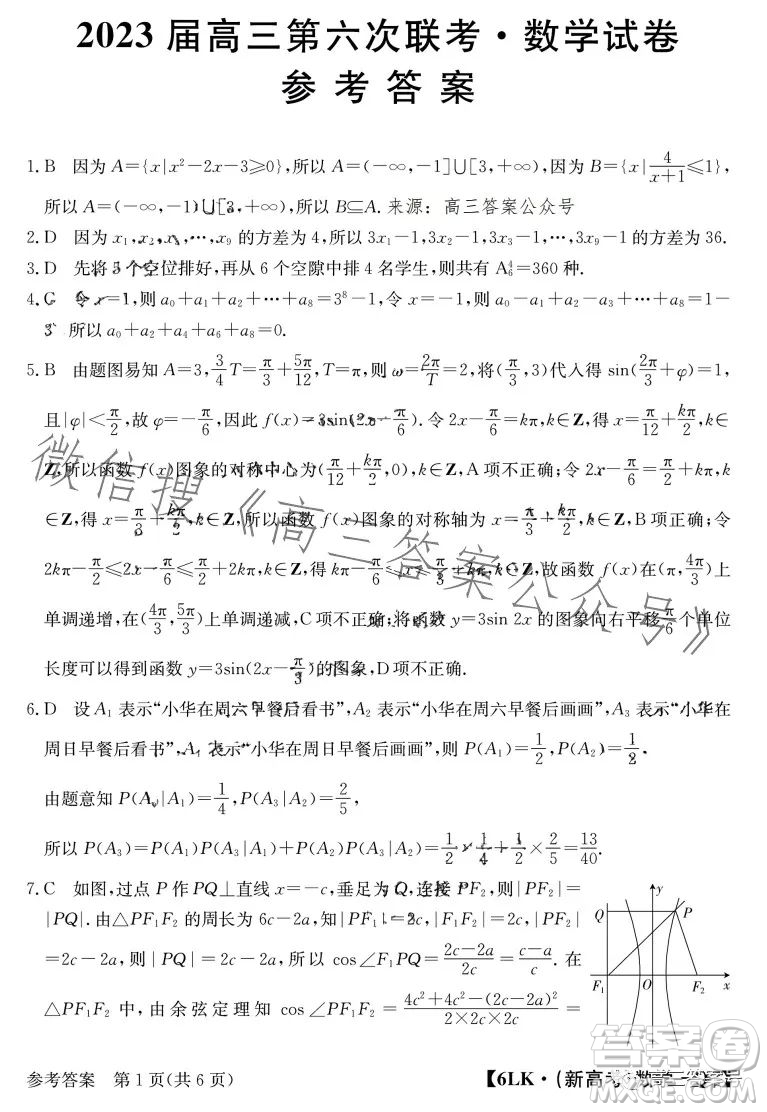 2023 届高三第六次联考·数学试卷
参考答案
1.B 因为 A={x|x²-2x-3⩾0},所以 A=(-∞,-1]∪[3,+∞),因为 B={x|4/(x+1)⩽1},
所以 A=(-∞,-1)∪[3,+∞),所以 B⊆A. 来源：高三答案公众号
2.D 因为 x₁,x₂,x₃,…,x₉ 的方差为 4,所以 3x₁-1,3x₂-1,3x₃-1,…,3x₉-1 的方差为 36.
3.D 先将 5 个空位排好,再从 6 个空隙中排 4 名学生,则共有 A₆⁴=360 种.
4.C 令 x=1,则 a₀+a₁+a₂+…+a₈=3⁸-1,令 x=-1,则 a₀-a₁+a₂-a₃+…+a₈=1-
3⁸ 所以 a₀+a₂+a₄+a₆+a₈=0.
5.B 由题图易知 A=3,3/4 T=π/3+5π/12,T=π,则 ω=2π/T=2,将(π/3,3)代入得 sin(2π/3+φ)=1,
且|φ|<π/2,故 φ=-π/6,因此 f(x)=3sin(2x-π/6). 令 2x-π/6=kπ,k∈Z,得 x=π/12+kπ/2,k∈
Z,所以函数 f(x)图象的对称中心为(π/12+kπ/2,0),k∈Z,A 项不正确;令 2x-π/6=π/2+kπ,k
∈Z,得 x=π/3+kπ/2,k∈Z,所以函数 f(x)图象的对称轴为 x=π/3+kπ/2,k∈Z,B 项正确;令
2kπ-π/2⩽2x-π/6⩽π/2+2kπ,k∈Z,得 kπ-π/6⩽x⩽π/3+kπ,k∈Z,故函数 f(x)在(π,4π/3)上
单调递增,在(4π/3,5π/3)上单调递减,C 项不正确;将函数 y=3sin 2x 的图象向右平移 π/6 个单位
长度可以得到函数 y=3sin(2x-π/3)的图象,D 项不正确.
6.D 设 A₁ 表示“小华在周六早餐后看书”,A₂ 表示“小华在周六早餐后画画”,A₃ 表示“小华在
周日早餐后看书”,A₄ 表示“小华在周日早餐后画画”,则 P(A₁)=1/2,P(A₂)=1/2.
由题意知 P(A₃|A₁)=1/4,P(A₃|A₂)=2/5,
所以 P(A₃)=P(A₁)P(A₃|A₁)+P(A₂)P(A₃|A₂)=1/2×1/4+1/2×2/5=13/40.
7.C 如图,过点 P 作 PQ⊥直线 x=-c,垂足为 Q,连接 PF₂,则|PF₂|=
|PQ|. 由△PF₁F₂ 的周长为 6c-2a,知|PF₁|=2c,|F₁F₂|=2c,|PF₂|
=2c-2a,则|PQ|=2c-2a,所以 cos∠F₁PQ=(2c-2a)/2c=(c-a)/c. 在
△PF₁F₂ 中,由余弦定理知 cos∠PF₁F₂=(4c²+4c²-(2c-2a)²)/(2×2c×2c)=
y
Q
P
F₁
O
F₂
x
微信搜《高三答案公众号》
参考答案 第 1 页(共 6 页)
【6LK·(新高考)数学